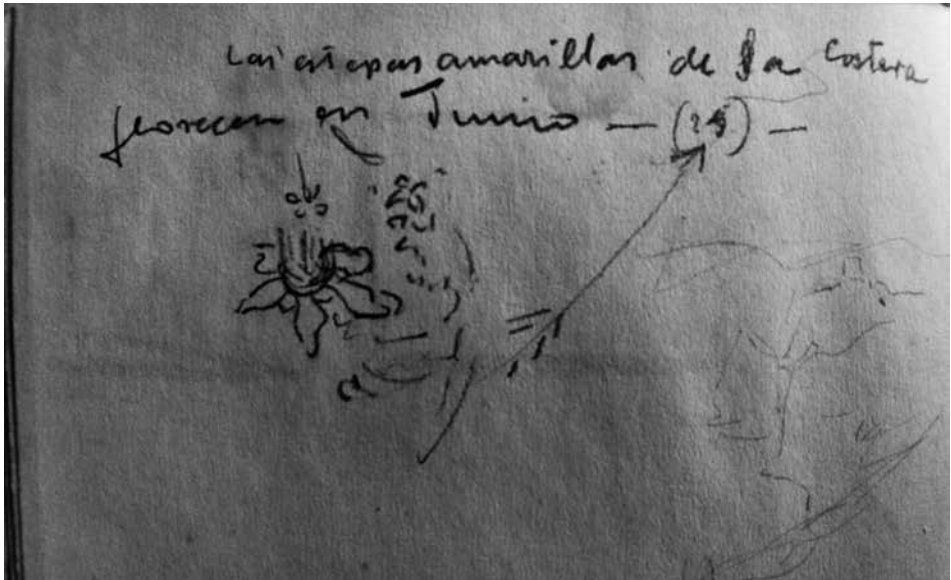 Las estepas amarillas de la Costera
florecen en Junio — (25) —